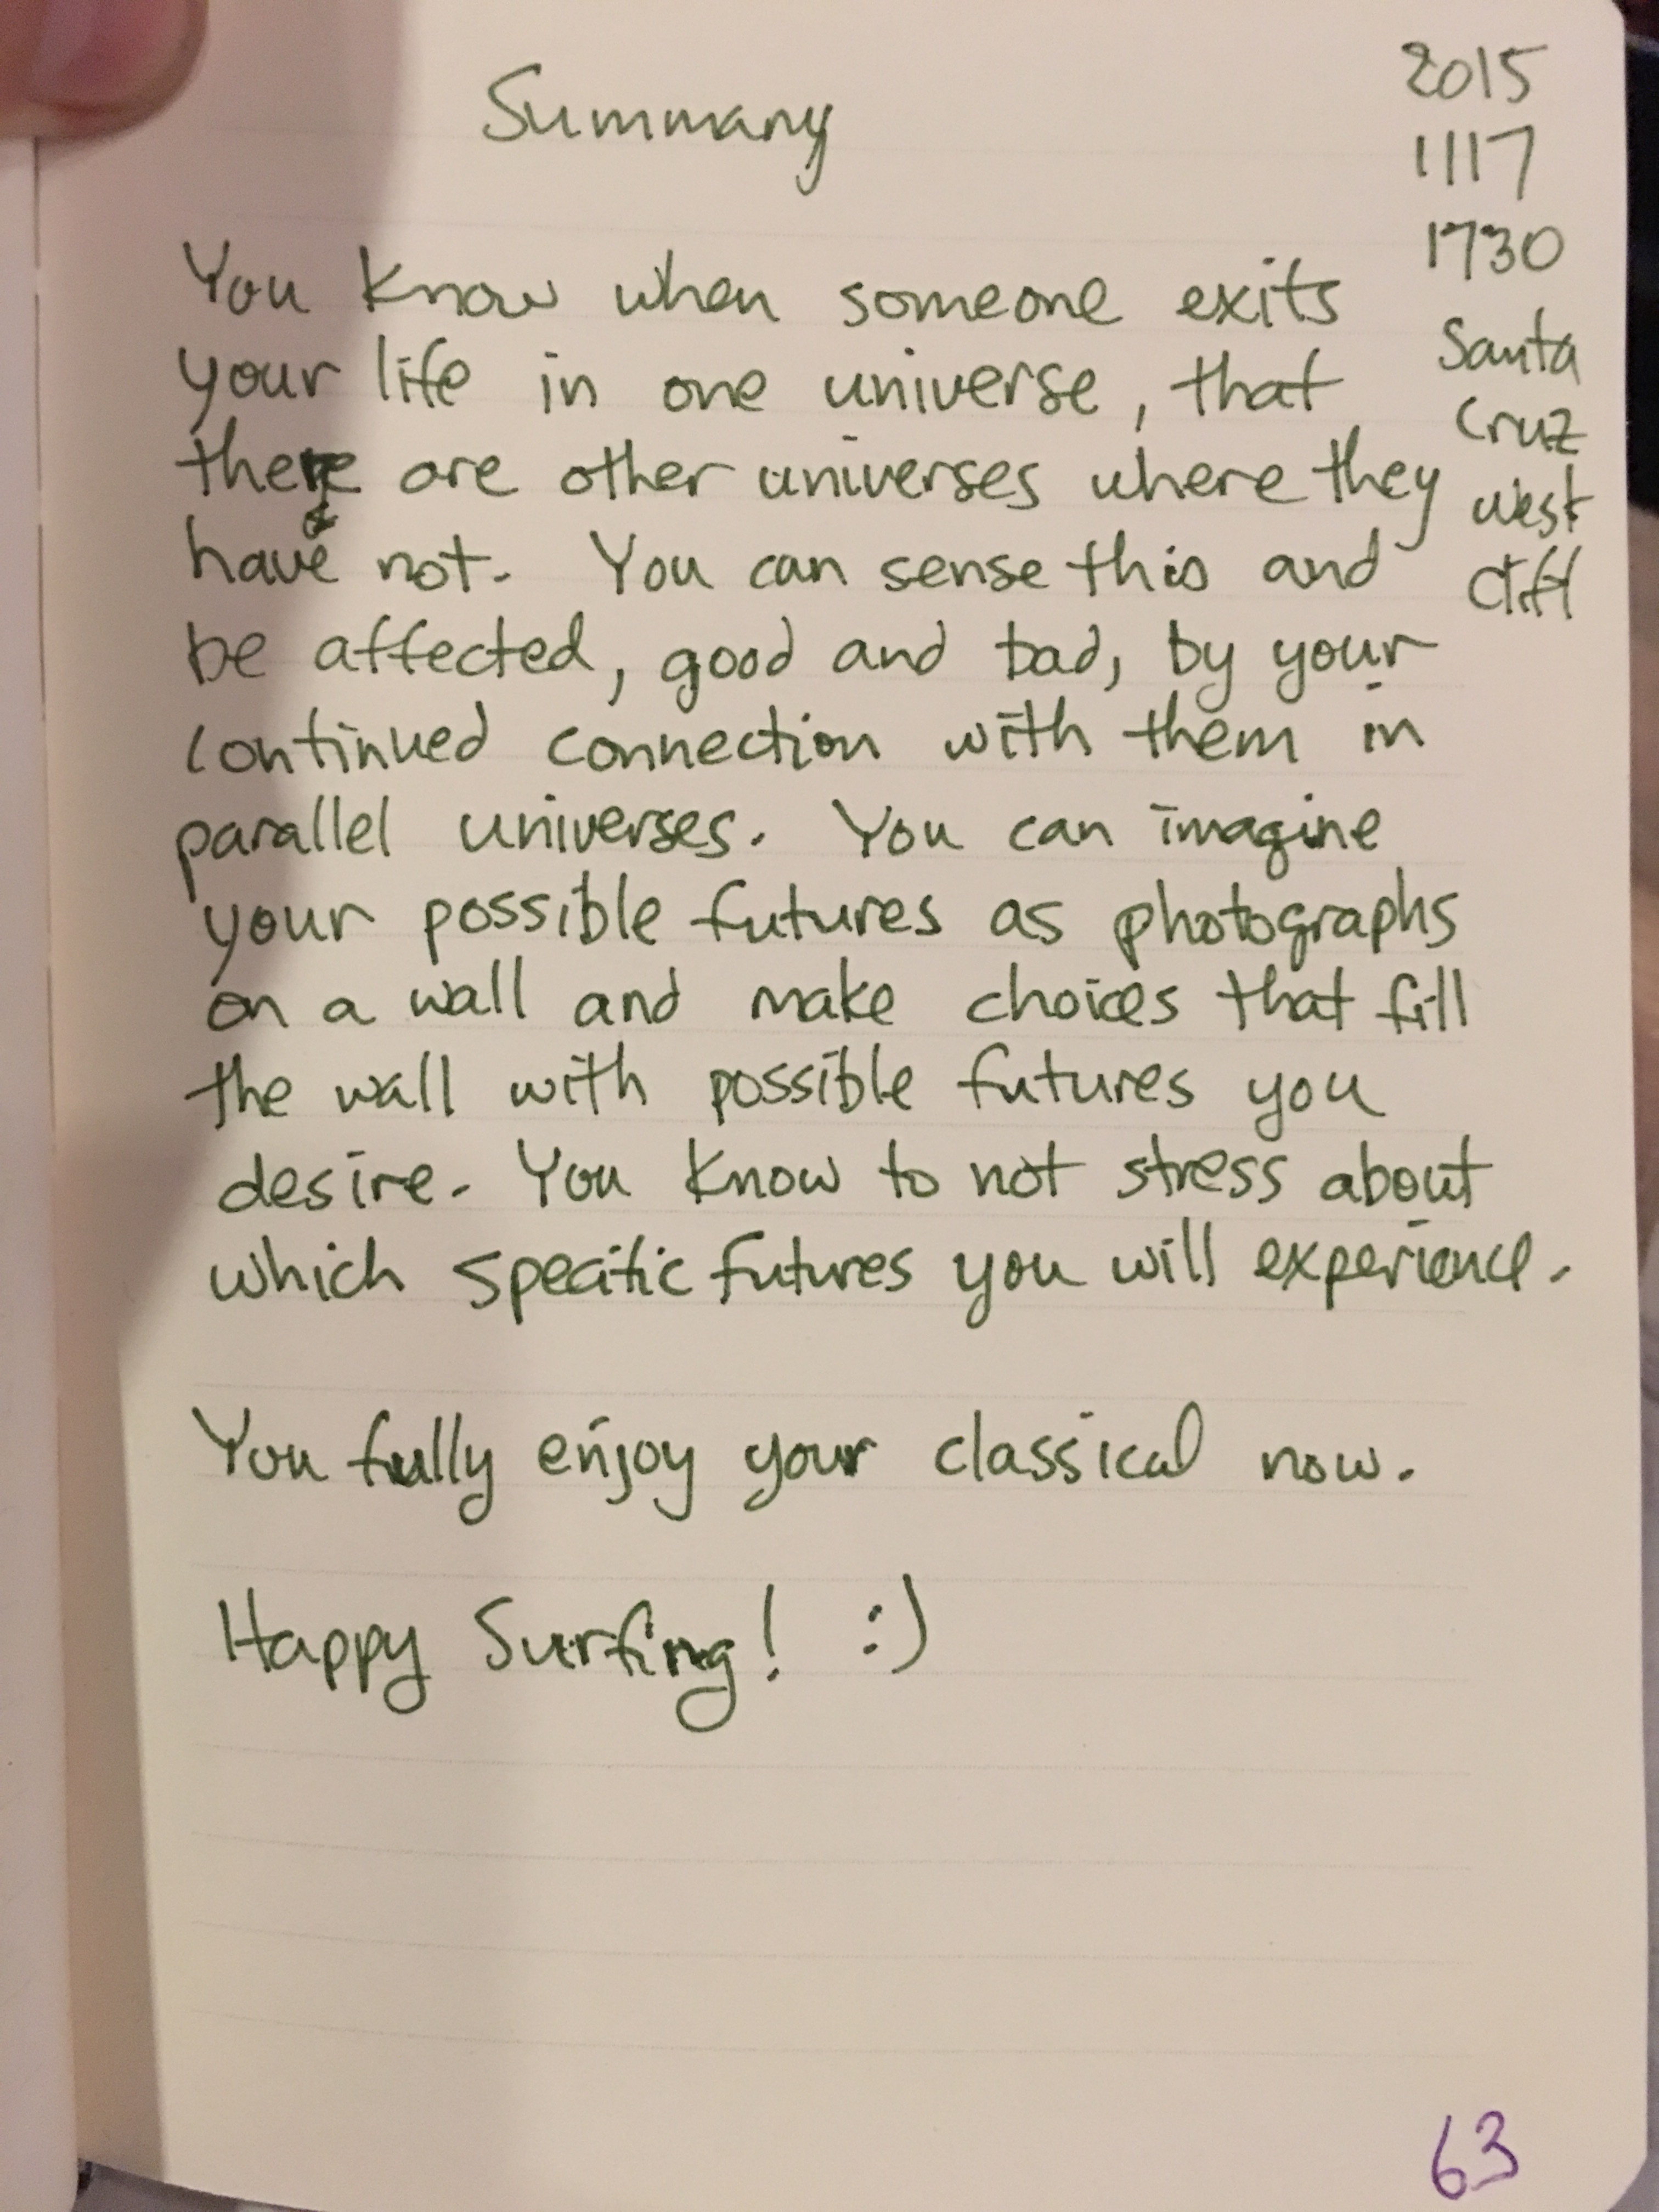 Summary
2015
1117
1730
Santa
Cruz
West
Cliff
You know when someone exits
your life in one universe, that
there are other universes where they
have not. You can sense this and
be affected, good and bad, by your
continued connection with them in
parallel universes. You can imagine
your possible futures as photographs
on a wall and make choices that fill
the wall with possible futures you
desire. You know to not stress about
which specific futures you will experience.
You fully enjoy your classical now.
Happy Surfing! :)
63